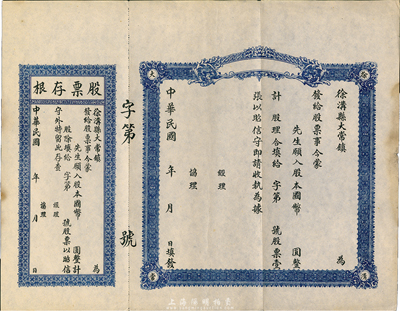 徐溝縣大常鎮 為
發給股票事今蒙
先生願入股本國幣 圓整
計 股理合填給 字第 號股票壹
張以昭信守即請收執為據
經理
協理
中華民國 年 月 日填發
字第 號
股票存根
徐溝縣大常鎮 為
發給股票事今蒙
先生願入股本國幣 圓整計
股除填給 字第 號股票以昭信
守外特留此存查
經理
協理
中華民國 年 月 日